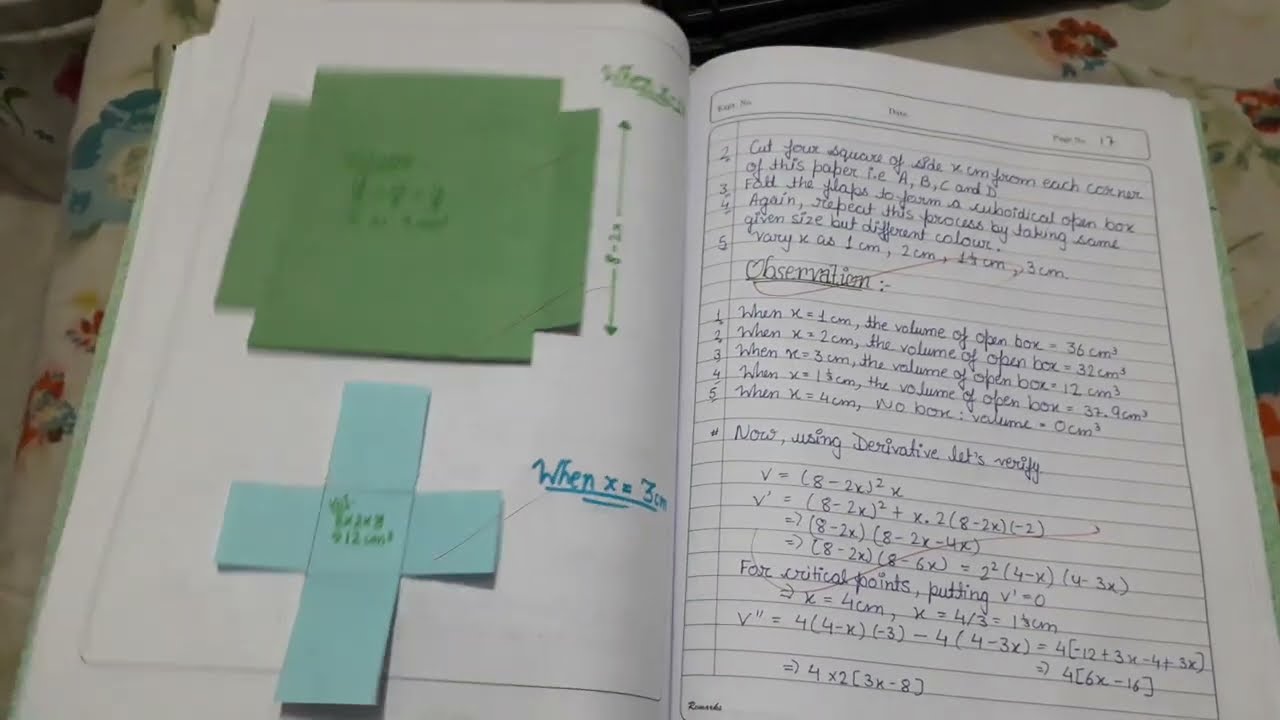 When
8 - 2x
When x = 3cm
Vol.
2x2x3
=> 12 cm³
Expt. No.
Date
Page No. 17
2. Cut four square of side x cm from each corner
of this paper i.e A, B, C and D
3. Fold the flaps to form a cuboidical open box
4. Again, repeat this process by taking same
given size but different colour.
5. Vary x as 1 cm, 2 cm, 1⅓ cm, 3 cm.
Observation :-
1. When x = 1 cm, the volume of open box = 36 cm³
2. When x = 2 cm, the volume of open box = 32 cm³
3. When x = 3 cm, the volume of open box = 12 cm³
4. When x = 1⅓ cm, the volume of open box = 37.9 cm³
5. When x = 4 cm, No box : volume = 0 cm³
* Now, using Derivative let's verify
V = (8 - 2x)² x
V' = (8 - 2x)² + x. 2(8 - 2x)(-2)
=> (8 - 2x)(8 - 2x - 4x)
=> (8 - 2x)(8 - 6x) = 2²(4 - x)(4 - 3x)
For critical points, putting V' = 0
=> x = 4 cm, x = 4/3 = 1⅓ cm
V" = 4(4 - x)(-3) - 4(4 - 3x) = 4[-12 + 3x - 4 + 3x]
=> 4[6x - 16]
=> 4 x 2[3x - 8]
Remarks